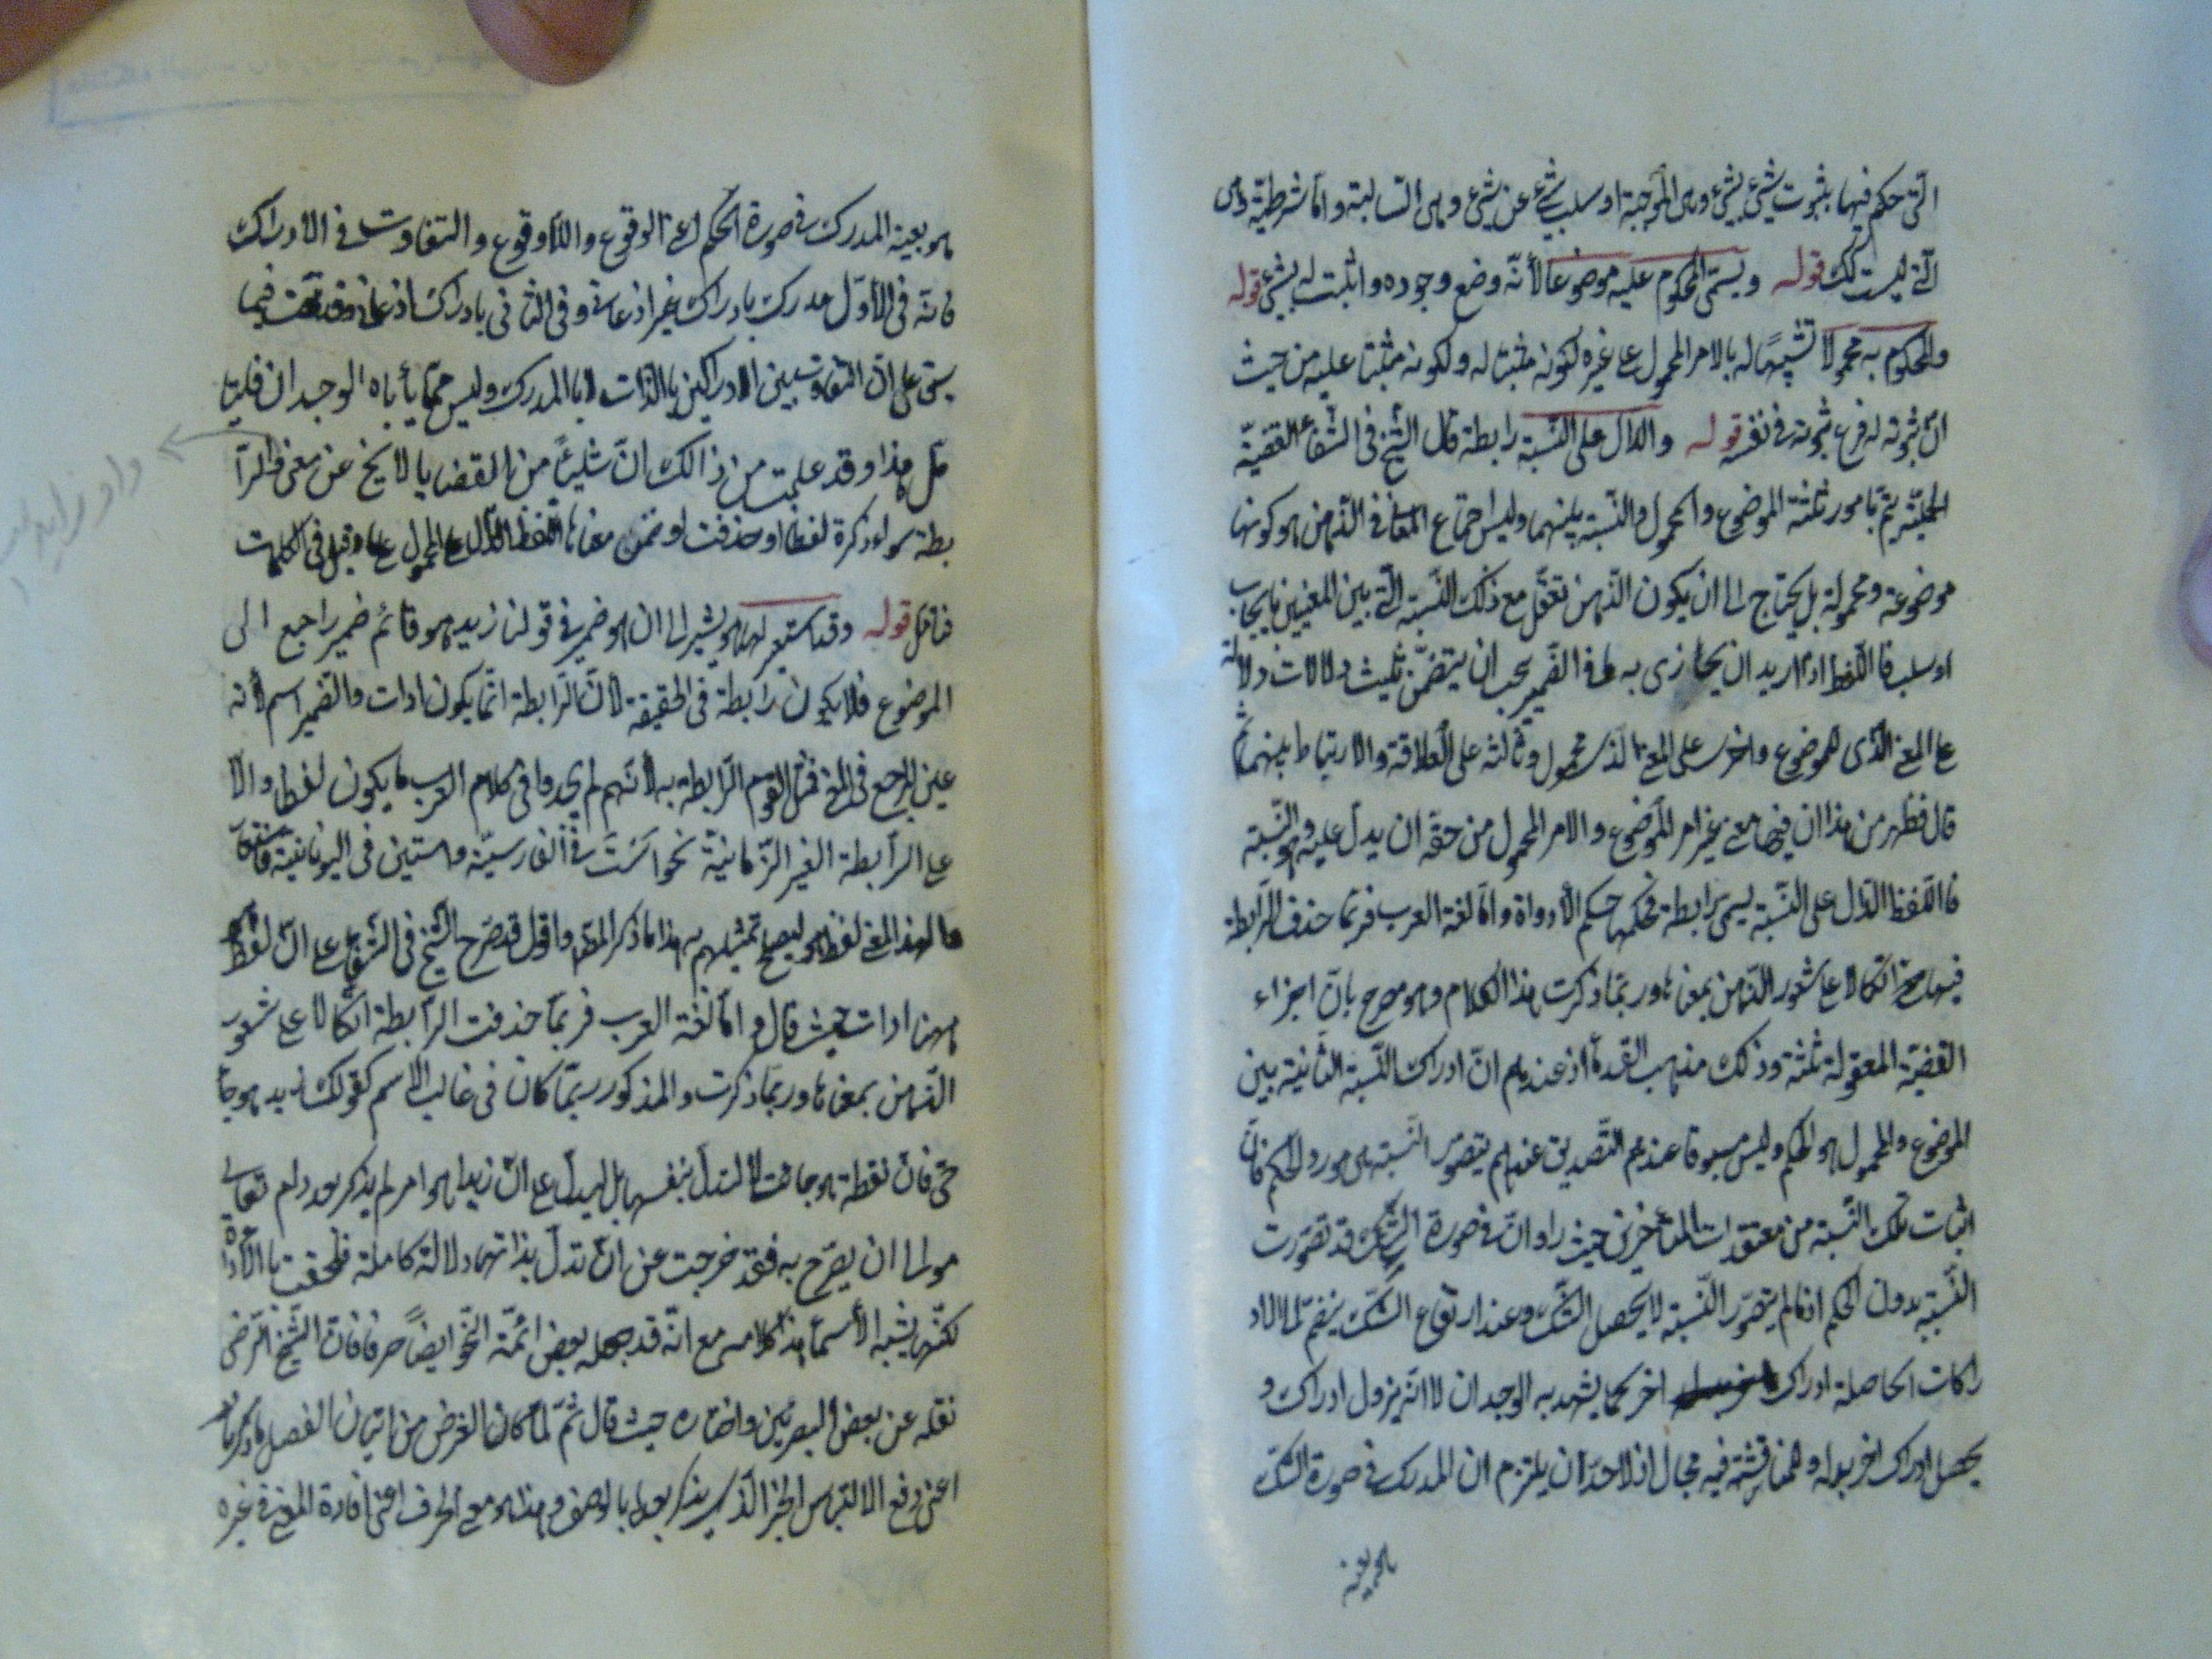 التى حكم فيها بثبوت شئ بشئ وهى الموجبة او سلب شئ عن شئ وهى السالبة واما شرطية وهى
التى ليست كك قوله ويسمى المحكوم عليه موضوعا لأنه وضع وجوده واثبت له شئ قوله
والمحكوم به محمولا تشبيها له بالامر المحمول على غيره لكونه مثبتا له ولكونه مثبتا عليه من حيث
ان ثبوته له فرع ثبوته فى نفسه قوله والدال على النسبة رابطة قال الشيخ فى الشفاء القضية
الحملية يتم بامور ثلثة الموضوع والمحمول والنسبة بينهما وليس اجتماع المعانى فى الذهن هو كونها
موضوعة ومحمولة بل يحتاج الى ان يكون الذهن تعقل مع ذلك النسبة التى بين المعنيين بايجاب
او سلب فاللفظ اذا اريد ان يحاذى به ما فى الضمير يجب ان يتضمن ثلث دلالات دلالة
على المعنى الذى للموضوع واخرى على المعنى الذى للمحمول وثالثة على العلاقة والارتباط بينهما ثم
قال فظهر من هذا ان فيها معنى غير امر الموضوع والامر المحمول من حقه ان يدل عليه وهو النسبة
فاللفظ الدال على النسبة يسمى رابطة فحكمها حكم الأدواة واما لغة العرب فربما حذف الرابطة
فيها اتكالا على شعور الذهن بمعناها وربما ذكرت هذا الكلام وهو صرح بان اجزاء
القضية المعقولة ثلثة وذلك مذهب القدماء اذ عندهم ان ادراك النسبة الثانية بين
الموضوع والمحمول هو الحكم وليس مسبوقا عندهم التصديق عندهم بتصور النسبة هى مورد الحكم فان
اثبات تلك النسبة من معتقدات المتأخرين حيث راوا ان فى صورة الشك قد تصورت
النسبة بدون الحكم اذ ما لم يتصور النسبة لا يحصل الشك وعند ارتفاع الشك ينضم الى الاد
راكات الحاصلة ادراك اخر كما يشهد به الوجدان لا انه يزول ادراك و
يحصل ادراك اخر بدله وللمناقشة فيه مجال اذ لاحد ان يلتزم ان المدرك فى صورة الشك
هو بعينه
هو بعينه المدرك فى صورة الحكم اعنى الوقوع واللاوقوع والتفاوت فى الادراك
فانه فى الأول مدرك بادراك غير اذعانى وفى الثانى بادراك اذعانى وقد تحققت فيما
سبق على ان التفاوت بين الادراكين بالذات لا بالمدرك وليس مما يأباه الوجدان فليتا
مل هذا وقد علمت من ذالك ان شيئا من القضايا لا يخ عن معنى الرا
بطة سواء ذكرة لفظا او حذفت او تضمن معناها اللفظ الدال على المحمول على ما قيل فى الكلمات
فتامل قوله وقد استعير لها هو يشير الى ان هو ضمير فى قولنا زيد هو قائم ضمير راجع الى
الموضوع فلا يكون رابطة فى الحقيقة لأن الرابطة انما يكون ادات والضمير اسم لأنه
عين المرجع فى المعنى فمثل القوم الرابطة به لأنهم لم يجدوا فى كلام العرب ما يكون لفظا دالا
على الرابطة الغير الزمانية نحو است فى الفارسية واستين فى اليونانية
لهذا المعنى لفظ هو ليصح تمثيلهم به هذا ما ذكر المصنف واقول قد صرح الشيخ فى الشفاء على ان لفظ
ههنا ادات حيث قال واما لغة العرب فربما حذفت الرابطة اتكالا على شعور
الذهن بمعناها وربما ذكرت والمذكور ربما كان فى غالب الاسم كقولك زيد هو
حى فان لفظة هو جائت لا لتدل بنفسها بل ليدل على ان زيدا هو امر لم يذكر بعد دام
الى ان يصرح به فقد خرجت عن ان تدل بذاتها دلالة كاملة فلحقت بالأداة
لكنها يشبه الأسماء هذا كلامه مع انه قد جعله بعض ائمة النحو ايضا حرفا فان الشيخ الرضى
نقله عن بعض البصريين واختاره حيث قال ثم لما كان الغرض من اتيان الفصل ما ذكرنا
اعنى دفع التباس الخبر الذى يذكر بعده بالوصف وهذا هو معنى الحرف اعنى افادة المعنى فى غيره